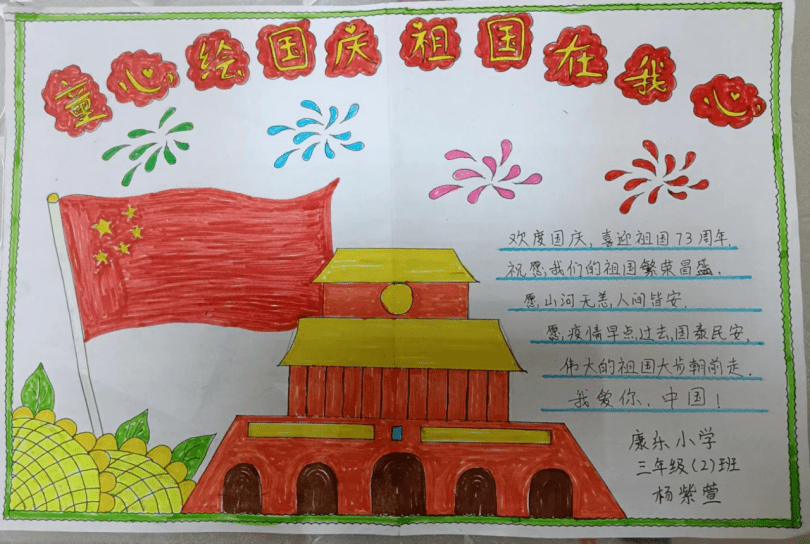 童心绘国庆祖国在我心
欢度国庆,喜迎祖国73周年,
祝愿,我们的祖国繁荣昌盛,
愿,山河无恙,人间皆安,
愿,疫情早点过去,国泰民安,
伟大的祖国大步朝前走,
我爱你,中国!
康乐小学
三年级(2)班
杨紫萱